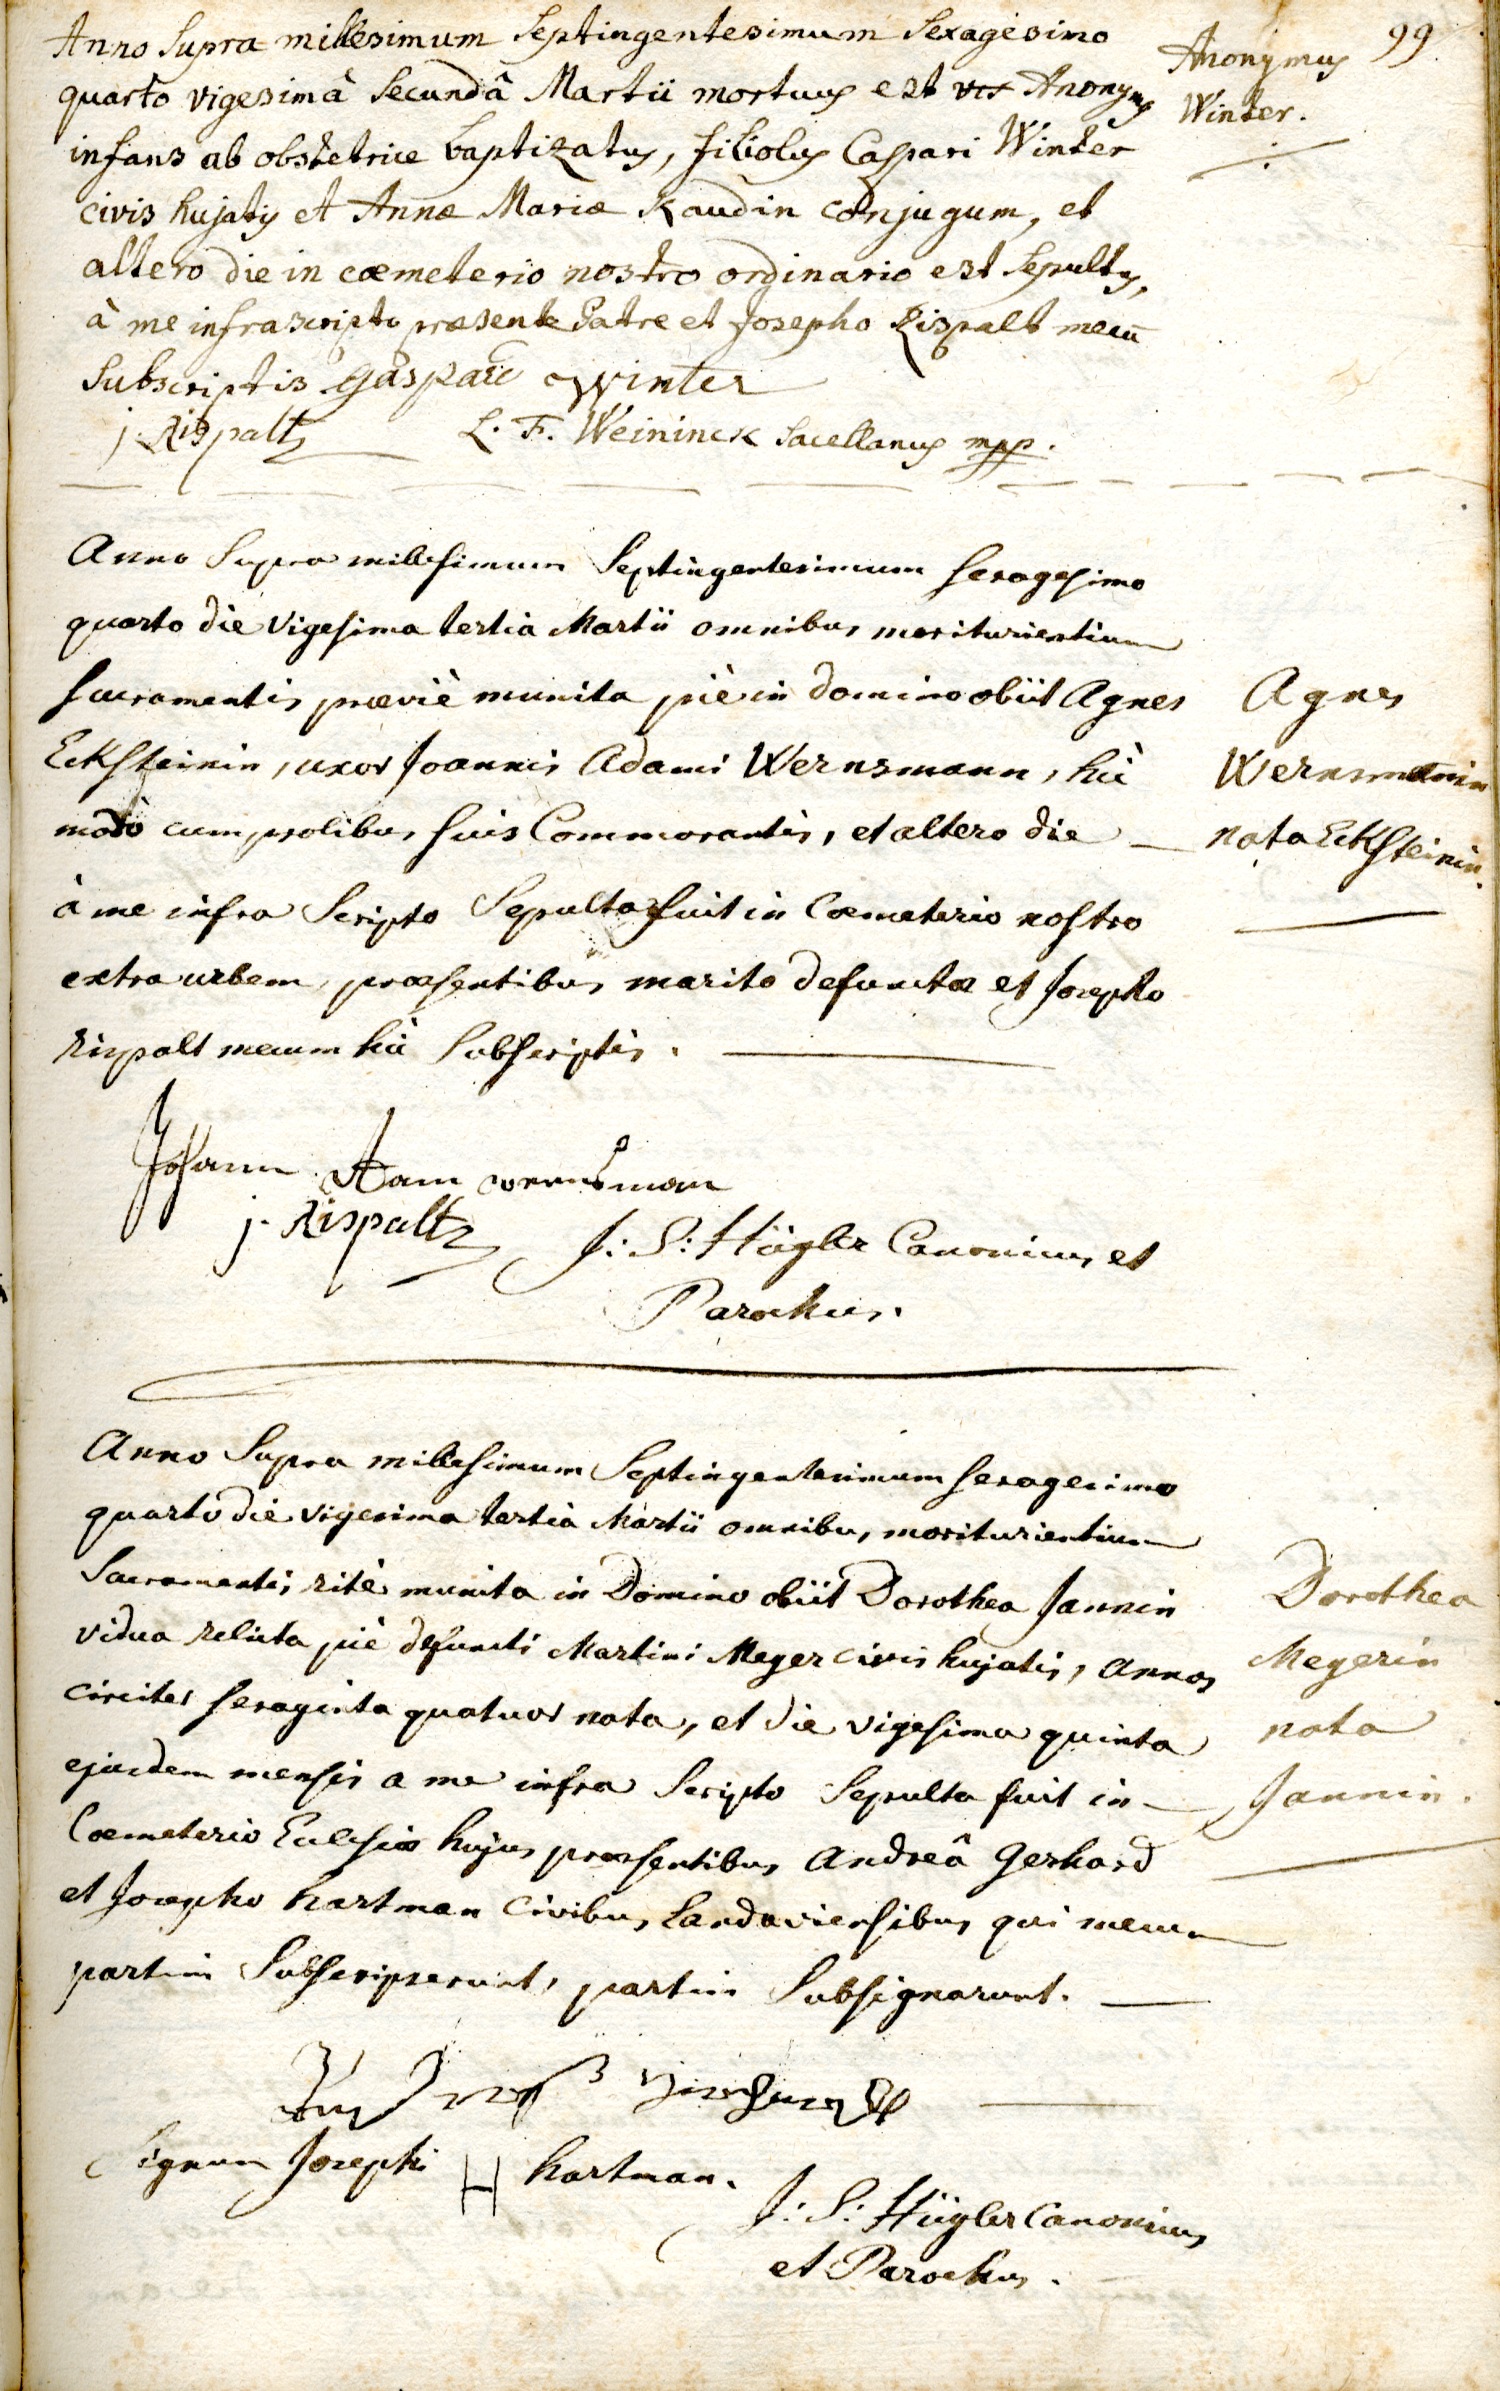 99
Anno Supra millesimum Septingentesimum Sexagesimo
quarto vigesimâ Secundâ Martii mortuus est Anonymus
infans ab obstetrice baptizatus, filiolus Caspari Winter
civis hujatis et Annæ Mariæ Kaudin conjugum, et
altero die in cœmeterio nostro ordinario est Sepultus,
à me infrascripto præsente Patre et Josepho Rispalt mecū
Subscriptis Gaspar Winter
j. Rispaltz L. F. Weininck Sacellanus mpp.
Anonymus
Winter.
Anno Supra millesimum Septingentesimum sexagesimo
quarto die vigesima tertia Martii omnibus moriturientium
sacramentis præviè munita piè in domino obiit Agnes
Ecksteinin, uxor Joannis Adami Wernsmann, hic
modò cum prolibus suis Commorantis, et altero die
à me infra Scripto Sepulta fuit in Cœmeterio nostro
extra urbem, præsentibus marito defunctæ et Josepho
Rispalt mecum hic Subscriptis.
Agnes
Wernsmanin
nata Ecksteinin.
Johann Adam wernsman
j. Rispaltz J: S: Hügler Canonicus et
Parochus.
Anno Supra millesimum Septingentesimum sexagesimo
quarto die vigesima tertia Martii omnibus moriturientium
Sacramentis ritè munita in Domino obiit Dorothea Jannin
vidua relicta piè defuncti Martini Meyer civis hujatis, annos
circiter sexaginta quatuor nata, et die vigesima quinta
ejusdem mensis a me infra Scripto Sepulta fuit in
Cœmeterio Ecclesiæ hujus præsentibus Andreâ Gerhard
et Josepho hartman Civibus Landaviensibus qui mecum
partim Subscripserunt, partim Subsignarunt.
Dorothea
Meyerin
nata
Jannin.
Signum Josephi H hartman.
J: S: Hügler Canonicus
et Parochus.